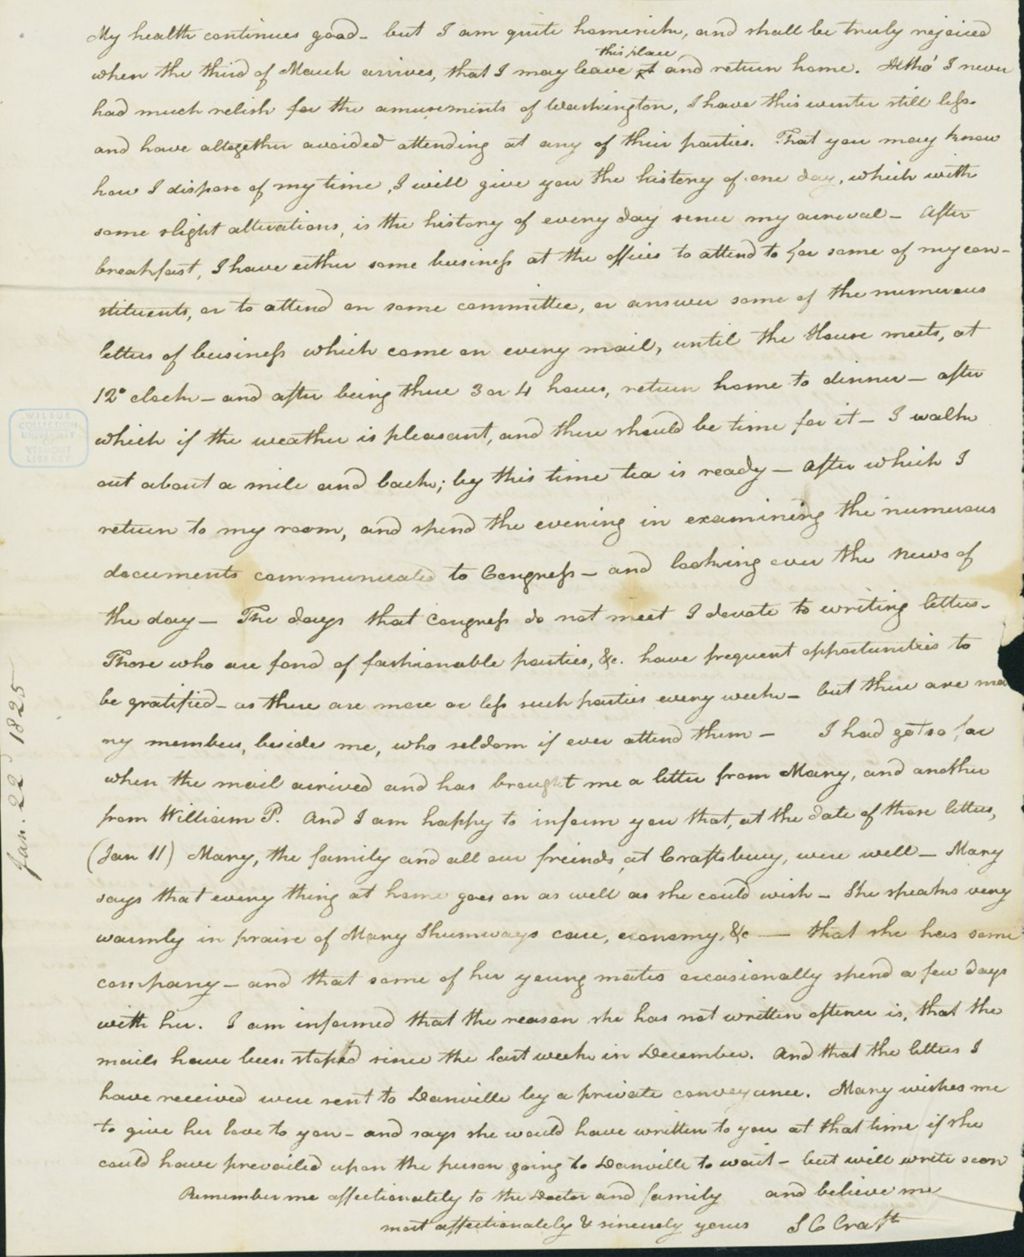 My health continues good - but I am quite homesick, and shall be truly rejoiced
this place
when the third of March arrives, that I may leave it and return home. Altho' I never
had much relish for the amusements of Washington, I have this winter still less.
and have altogether avoided attending at any of their parties. That you may know
how I dispose of my time, I will give you the history of one day, which with
some slight alterations, is the history of every day since my arrival - After
breakfast, I have either some business at the offices to attend to for some of my con-
stituents, or to attend on some committee, or answer some of the numerous
letters of business which come on every mail, until the House meets, at
12 o clock - and after being there 3 or 4 hours, return home to dinner - after
which if the weather is pleasant, and there should be time for it - I walk
out about a mile and back; by this time tea is ready - After which I
return to my room, and spend the evening in examining the numerous
documents communicated to Congress - and looking over the news of
the day - The days that Congress do not meet I devote to writing letters.
Those who are fond of fashionable parties, &c. have frequent opportunities to
be gratified - as there are more or less such parties every week - but there are ma
ny members, beside me, who seldom if ever attend them - I had got so far
when the mail arrived and has brought me a letter from Mary, and another
from William P. And I am happy to inform you that, at the date of those letters,
(Jan 11) Mary, the family and all our freinds, at Craftsbury, were well - Mary
says that every thing at home goes on as well as she could wish - She speaks very
warmly in praise of Mary Shumways care, economy, &c - that she has some
company - and that some of her young mates occasionally spend a few days
with her. I am informed that the reason she has not written oftener is, that the
mails have been stoped since the last week in December. And that the letters I
have received were sent to Danville by a private conveyance. Mary wishes me
to give her love to you - and says she would have written to you at that time if she
could have prevailed upon the person going to Danville to wait - but will write soon
Remember me affectionately to the Doctor and family and believe me
most affectionately & sincerely yours S C Crafts
Jan. 22d 1825
WILBUR
COLLECTION
UNIVERSITY
VERMONT
LIBRARY